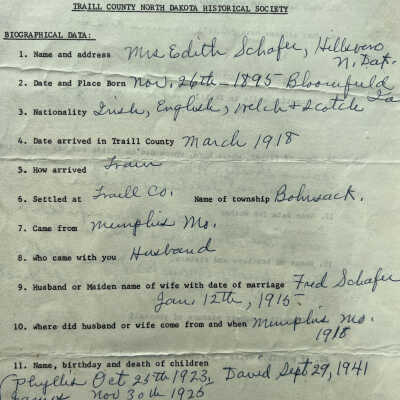 TRAILL COUNTY NORTH DAKOTA HISTORICAL SOCIETY
BIOGRAPHICAL DATA:
1. Name and address Mrs Edith Schafer, Hillsboro
N. Dak.
2. Date and Place Born Nov. 26th - 1895 Bloomfield
Ia
3. Nationality Irish, English, Welch & Scotch
4. Date arrived in Traill County March 1918
5. How arrived Train
6. Settled at Traill Co. Name of township Bohnsack.
7. Came from Memphis Mo.
8. Who came with you Husband
9. Husband or Maiden name of wife with date of marriage Fred Schafer
Jan. 12th, 1915-
10. Where did husband or wife come from and when Memphis Mo.
1918
11. Name, birthday and death of children
Phyllis Oct 25th 1923, David Sept 29, 1941
Nov 30th 1925